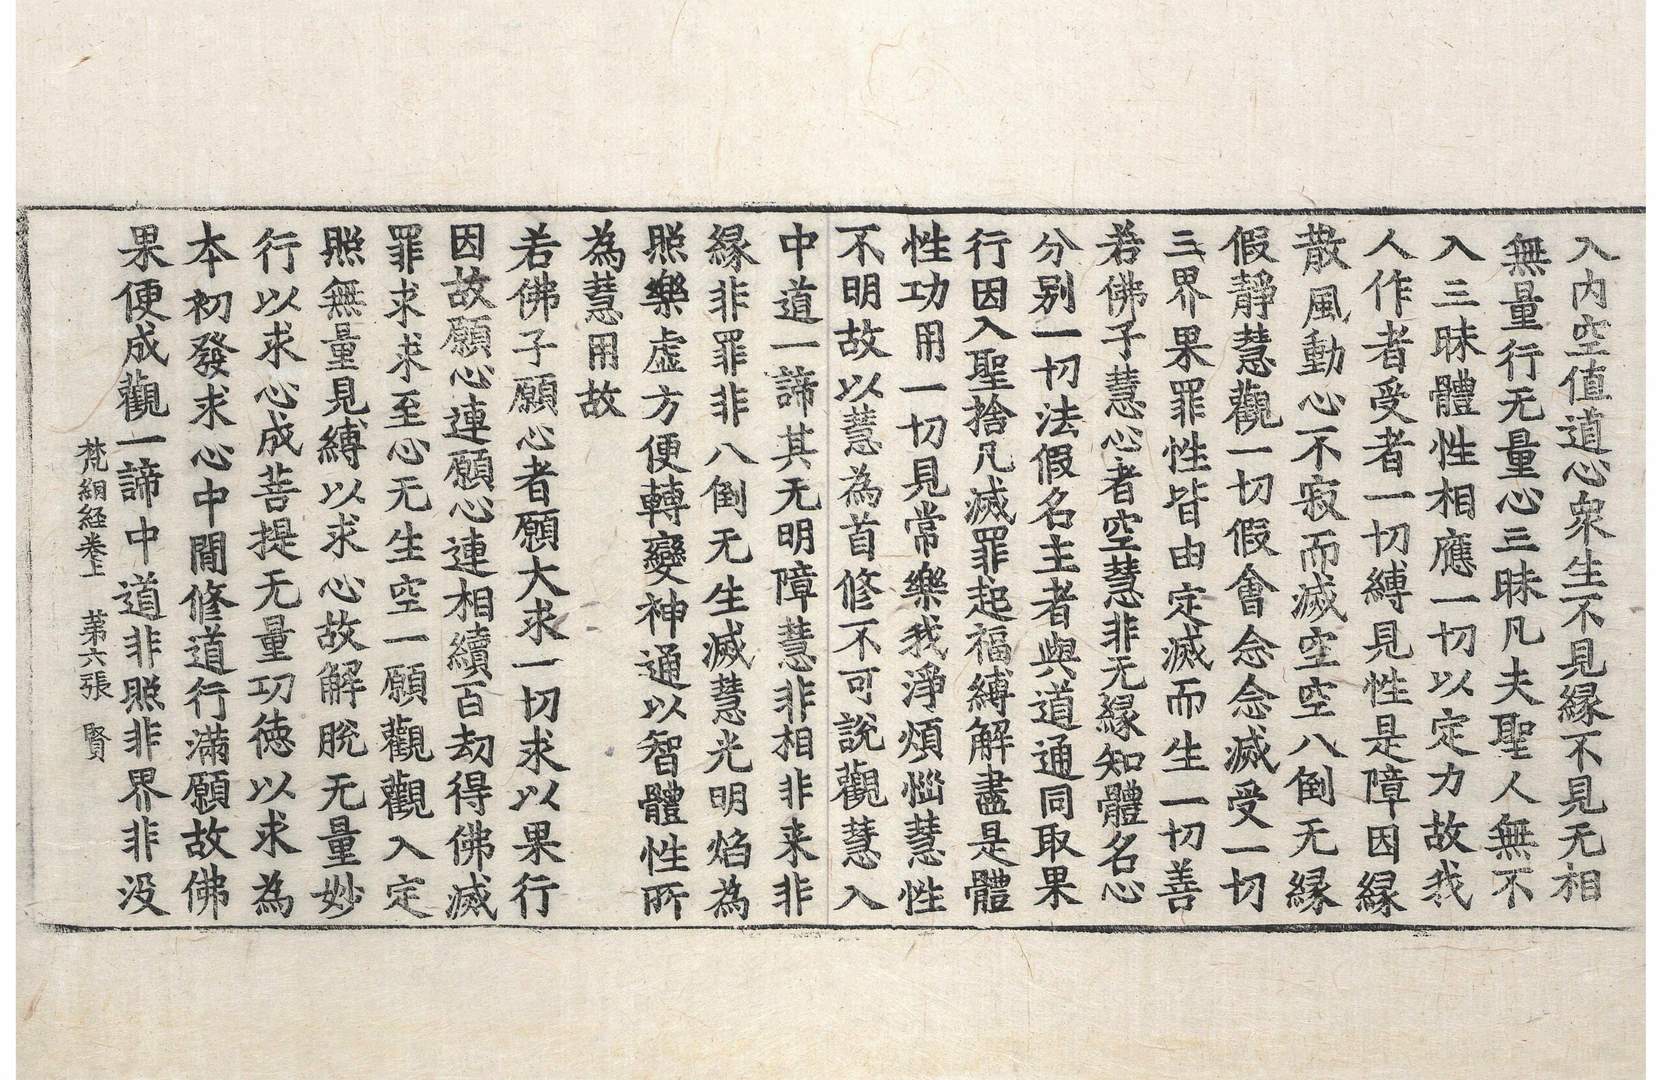 入內空值道心衆生不見縁不見无相
無量行无量心三昧凡夫聖人無不
入三昧體性相應一切以定力故我
人作者受者一切縛見性是障因縁
散風動心不寂而滅空空八倒无縁
假靜慧觀一切假會念念滅受一切
三界果罪性皆由定滅而生一切善
若佛子慧心者空慧非无縁知體名心
分别一切法假名主者與道通同取果
行因入聖捨凡滅罪起福縛解盡是體
性功用一切見常樂我淨煩惱慧性
不明故以慧為首修不可說觀慧入
中道一諦其无明障慧非相非来非
縁非罪非八倒无生滅慧光明焰為
照樂虚方便轉變神通以智體性所
為慧用故
若佛子願心者願大求一切求以果行
因故願心連願心連相續百劫得佛滅
罪求求至心无生空一願觀觀入定
照無量見縛以求心故解脫无量妙
行以求心成菩提无量功徳以求為
本初發求心中間修道行滿願故佛
果便成觀一諦中道非照非界非没
梵網経卷上　第六張　賢